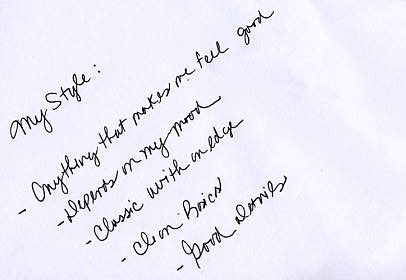 My Style:
- Anything that makes me feel good
- Depends on my mood
- Classic with an edge
- Clean Basics
- Good details